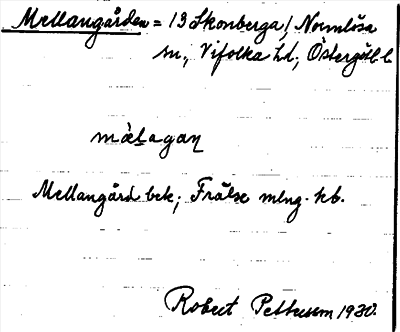 Mellangården = 13 Skonberga, Normlösa
sn, Vifolka hd, Östergötl. l.
mäl̠agaɳ
Mellangård bek; Frälse mlng. kb.
Robert Pettersson 1930.